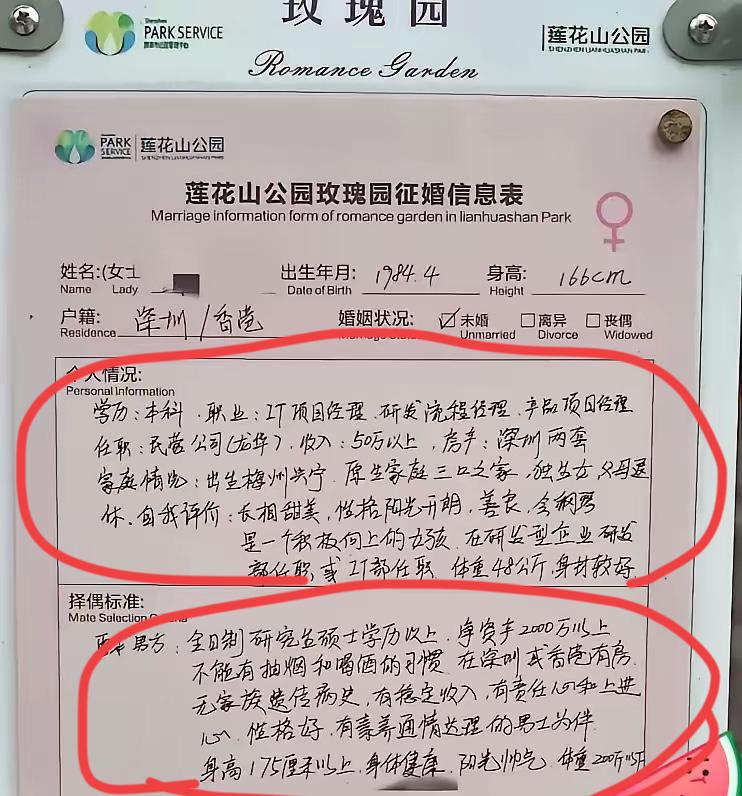 玫瑰园
Shenzhen
PARK SERVICE
莲花山公园
SHENZHEN LIANHUASHAN PARK
Romance Garden
PARK
SERVICE
莲花山公园
SHENZHEN LIANHUASHAN PARK
莲花山公园玫瑰园征婚信息表
Marriage information form of romance garden in lianhuashan Park
姓名:(女士 出生年月: 1984.4 身高: 166cm
Name Lady Date of Birth Height
户籍: 深圳/香港 婚姻状况: ☑未婚 □离异 □丧偶
Residence Unmarried Divorce Widowed
个人情况:
Personal Information
学历:本科、职业:IT项目经理、研发流程经理、产品项目经理
任职:民营公司(龙华)、收入:50万以上,房产:深圳两套
家庭情况:出生梅州兴宁、原生家庭三口之家、独生女、父母退
休、自我评价:长相甜美,性格阳光开朗,善良,会粤语
是一个积极向上的女孩、在研发型企业研发
部任职或IT部任职、体重48公斤,身材较好
择偶标准:
Mate Selection
男方:全日制研究生硕士学历以上、净资产2000万以上
不能有抽烟和喝酒的习惯、在深圳或香港有房、
无家族遗传病史,有稳定收入,有责任心和上进
心、性格好,有素养通情达理的男士为伴
身高175厘米以上,身体健康,阳光帅气、体重200斤以下